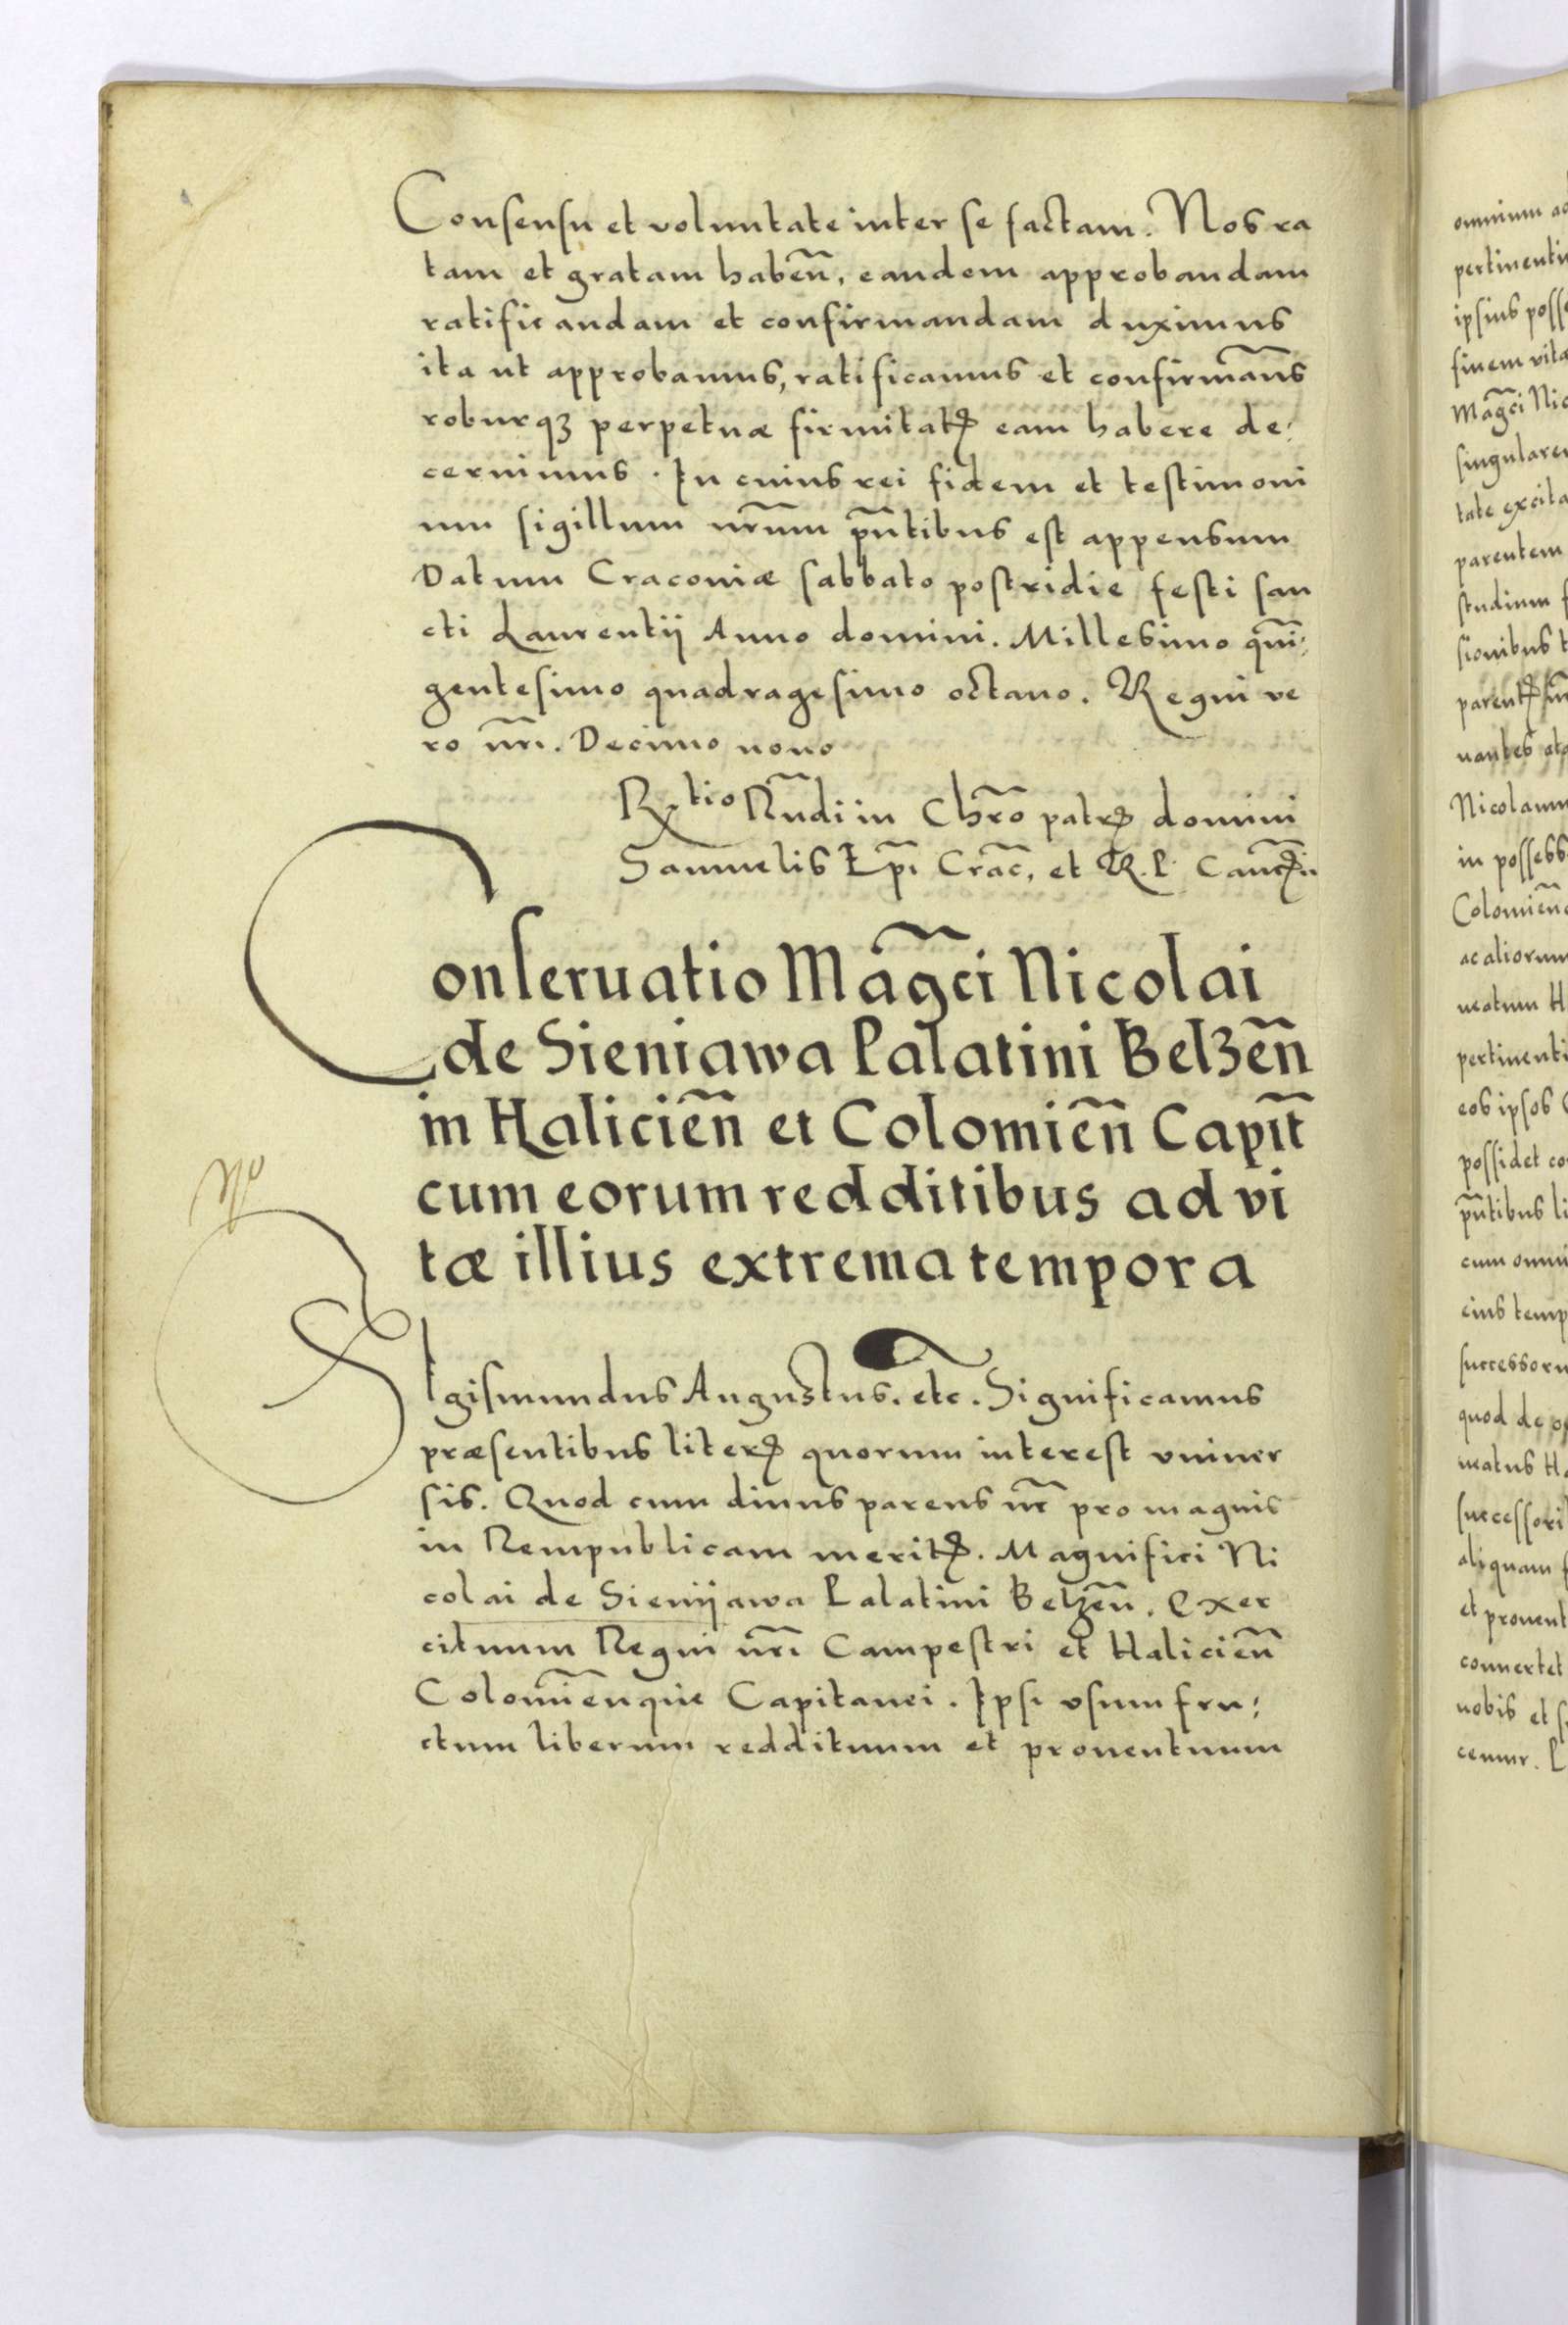 Consensu et voluntate inter se factam. Nos ra
tam et gratam habeñ, eandem approbandam
ratificandam et confirmandam duximus
ita ut approbamus, ratificamus et confirmãus
roburqꝫ perpetuæ firmitatꝭ eam habere de:
cernimus. In cuius rei fidem et testimoni
um sigillum nr̃um pñtibus est appensum
Datum Cracoviæ sabbato postridie festi san
cti Laurentij Anno domini. Millesimo qũi:
gentesimo quadragesimo octavo. Regni ve
ro nr̃i. Decimo nono
Rtio Rñdi in Chr̃o patrꝭ domini
Samuelis Ep̃i Crac̃, et R. P.
Conseruatio Mãgci Nicolai
de Sieniawa Palatini Belzeñ
in Halicieñ et Colomieñ Capit̃
cum eorum redditibus ad vi
tæ illius extrema tempora
Sigismundus Augustus. etc. Significamus
præsentibus literꝭ quorum interest vniuer
sis. Quod cum diuus parens nr̃ pro magnis
in Rempublicam meritꝭ. Magnifici Ni
colai de Sienijawa Palatini Belzeñ. Exer
cituum Regni nr̃i Campestri et Halicieñ
Colomieñque Capitanei. Ipsi vsumfru:
ctum liberum reddituum et prouentuum
omnium
ipsius
finem
Mãgci
tate
parentem
studium
sionibus
Nicolaum
in
ac aliorum
eos ipsos
possidet
pñtibus
cum
eius
quod de
aliquam
et
conuertet
nobis et